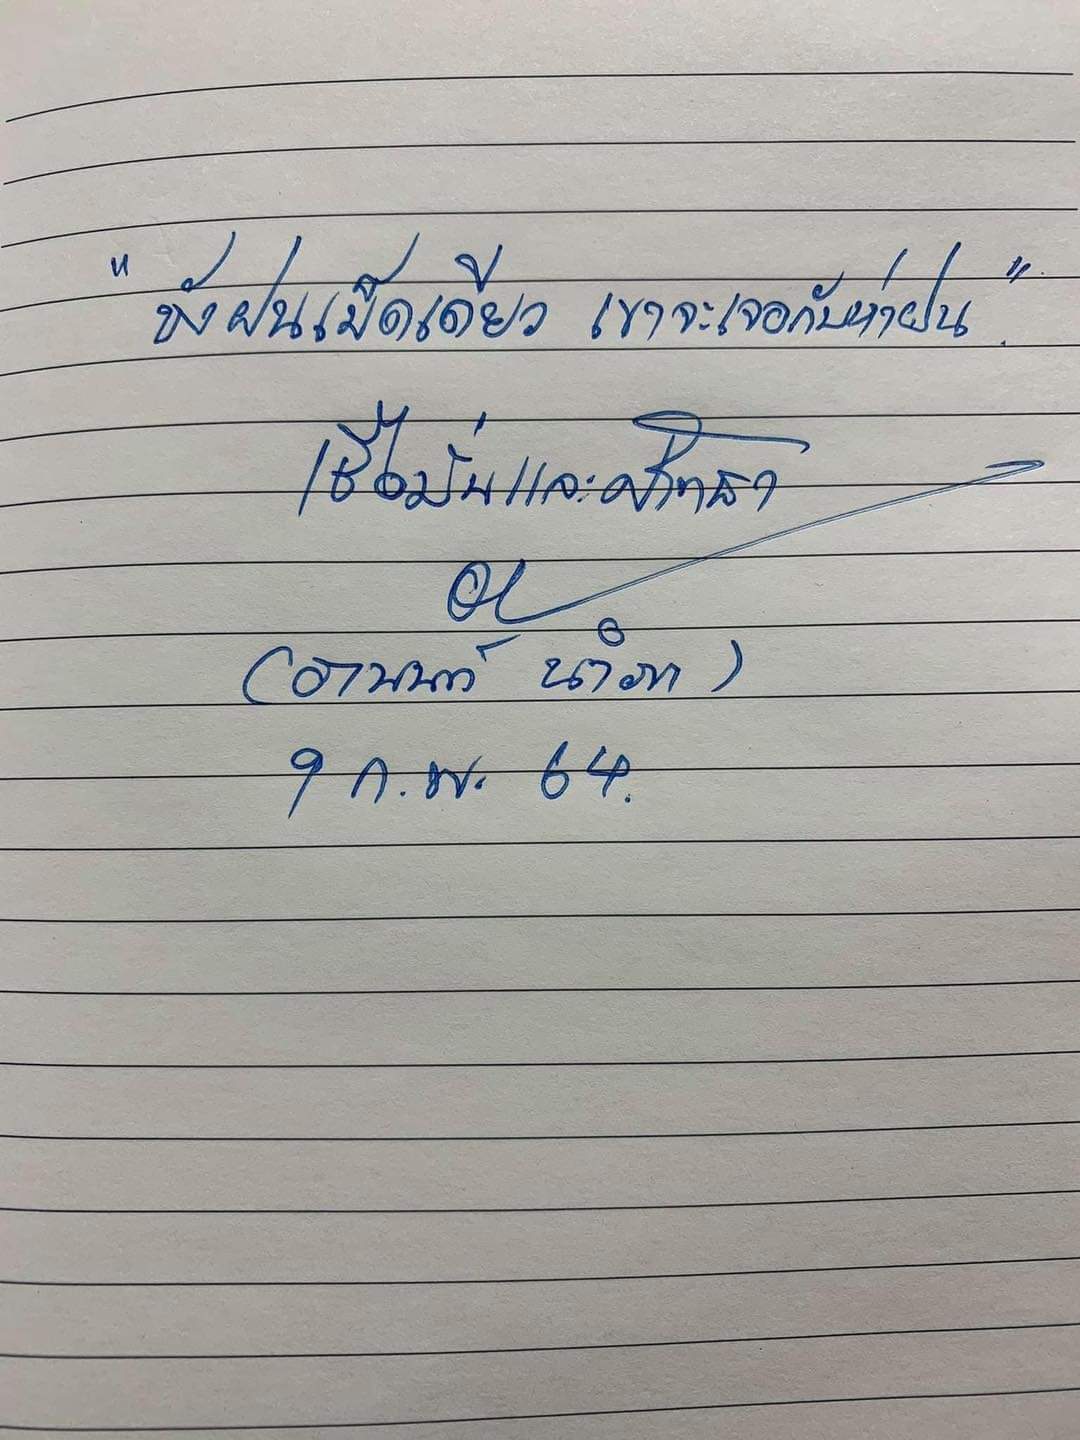 "ขังฝนเม็ดเดียว เขาจะเจอกับห่าฝน".
เชื่อมั่นและศรัทธา
(อานนท์ นำภา)
9 ก.พ. 64.